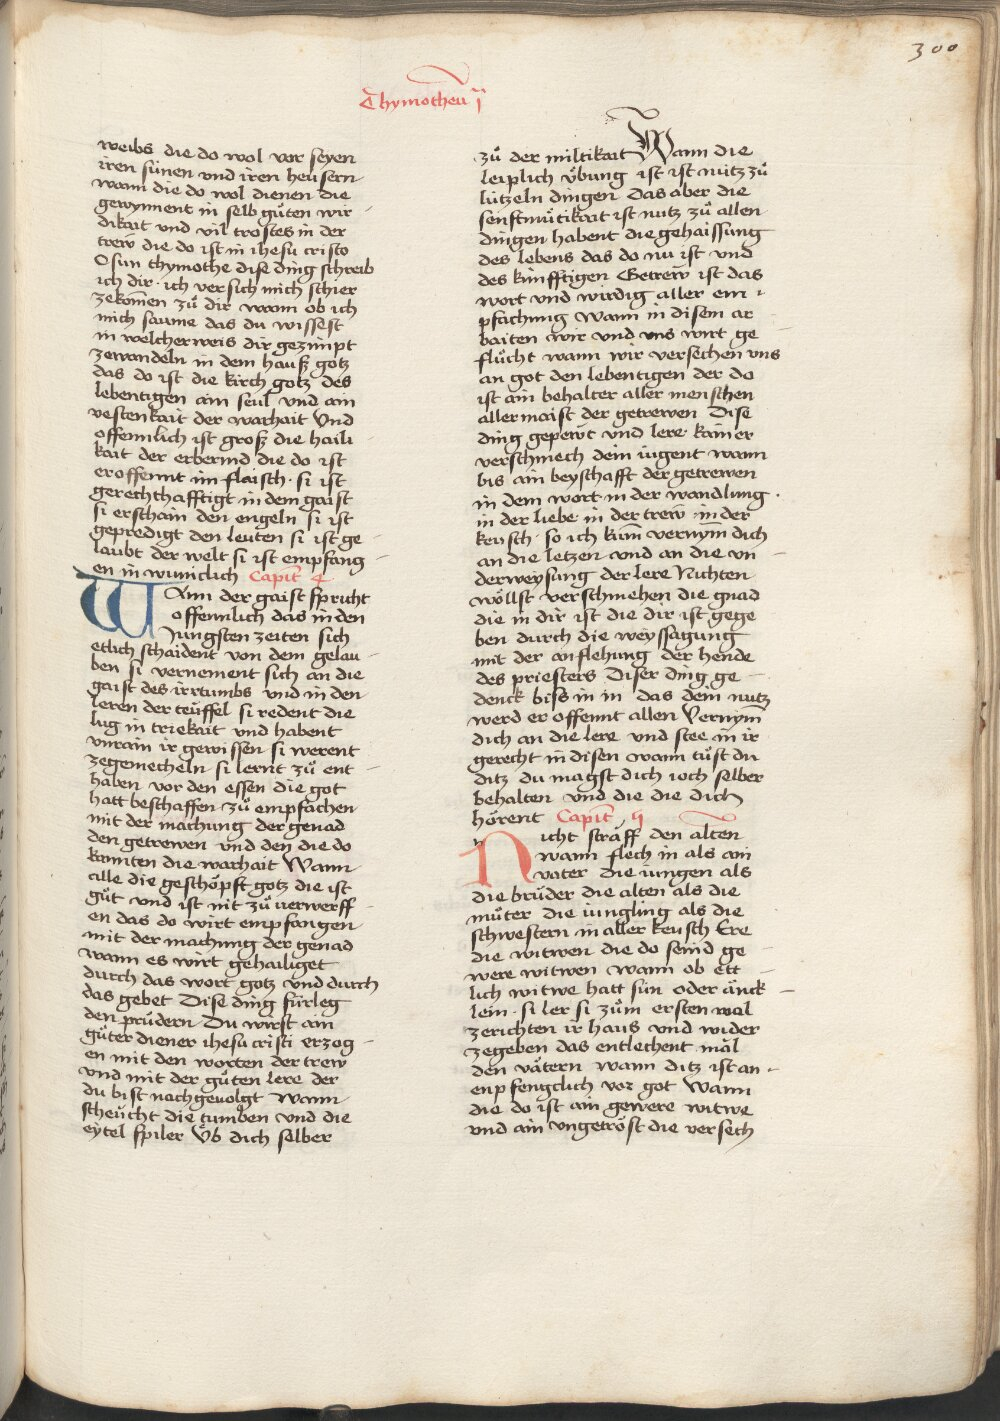 300
Thymotheu ij
weibs die do wol vor seyen
iren sünen vnd iren heüsern
wann die do wol dienen die
gewynnent in selb gůten wir-
dikait vnd vil trostes in der
trew̄ die do ist in ihesu cristo
O sun thymothe dise ding schreib
ich dir · ich versich mich schier
zekomen zů dir wann ob ich
mich saume das du wissest
in welcherweis dir gezimpt
zewandeln in dem hauß gotz
das do ist die kirch gotz des
lebentigen ain seul vnd ain
vestenkait der warhait Vnd
offennlich ist groß die haili-
kait der erbermd die do ist
eroffennt im flaisch · si ist
gerechthafftigt in dem gaist
si erschain den engeln si ist
gepredigt den leuten si ist ge-
laubt der welt si ist empfang-
en in wuniclich Capit̄ 4
Wann der gaist spricht
offennlich das in den
Jungsten zeiten sich
etlich schaident von dem gelau-
ben si vernement sich an die
gaist des irrtumbs vnd in den
leren der teüffel si redent die
lug in triekait vnd habent
vnrain ir gewissen si werent
zegemecheln si lernt zů ent-
haben vor den essen die got
hatt beschaffen zů empfachen
mit der machung der genad
den getrewen vnd den die do
kannten die warhait Wann
alle die geschöpft gotz die ist
gůt vnd ist nit zů uerwerff-
en das do wirt empfangen
mit der machung der genad
wann es wirt gehailiget
durch das wort gotz vnd durch
das gebet Dise ding fürleg
den prüdern Du wirst ain
gůter diener ihesu cristi erzog-
en mit den worten der trew
vnd mit der gůten lere der
du bist nachgeuolgt Wann
scheücht die tumben vnd die
eytel spiler Vb dich selber
zů der miltikait Wann die
leiplich übung ist ist nutz zů
lützeln dingen Das aber die
senftmůtikait ist nutz zů allen
dingen habent die gehaissung
des lebens das do nu ist vnd
des künfftigen Getrew̄ ist das
wort vnd wirdig aller em-
pfachung Wann in disem ar-
baiten wir vnd vns wirt ge-
flůcht wann wir versechen vns
an got den lebentigen der do
ist ain behalter aller menschen
allermaist der getrewen Dise
ding gepewt vnd lere kainer
verschmech dein iugent wann
bis ain beyschafft der getrewen
in dem wort in der wandlung ·
in der liebe in der trew̄ in der
keusch · so ich kum̄ vernym̄ dich
an die letzen vnd an die vn-
derweysung der lere Nichten
wöllst verschmehen die gnad
die in dir ist die dir ist gege
ben durch die weyssagung
mit der anflehung der hende
des priesters Diser ding ge-
denck biss in in das dein nutz
werd eroffennt allen Vernym̄
dich an die lere vnd stee in ir
gerecht in disen wann tůst du
ditz du magst dich ioch selber
behalten vnd die die dich
hörent Capit̄ v
Nicht straff den alten
wann flech in als ain
vater die iungen als
die brüder die alten als die
můter die iungling als die
schwestern in aller keusch Ere
die witwen die do seind ge-
were witwen wann ob ett-
lich witwe hatt sün oder änck-
lein · si ler si zům ersten mal
zerichten ir haus vnd wider
zegeben das entlechent mäl
den vätern wann ditz ist an-
enpfengclich vor got Wann
die do ist ain gewere witwe
vnd ain vngetröst die versech